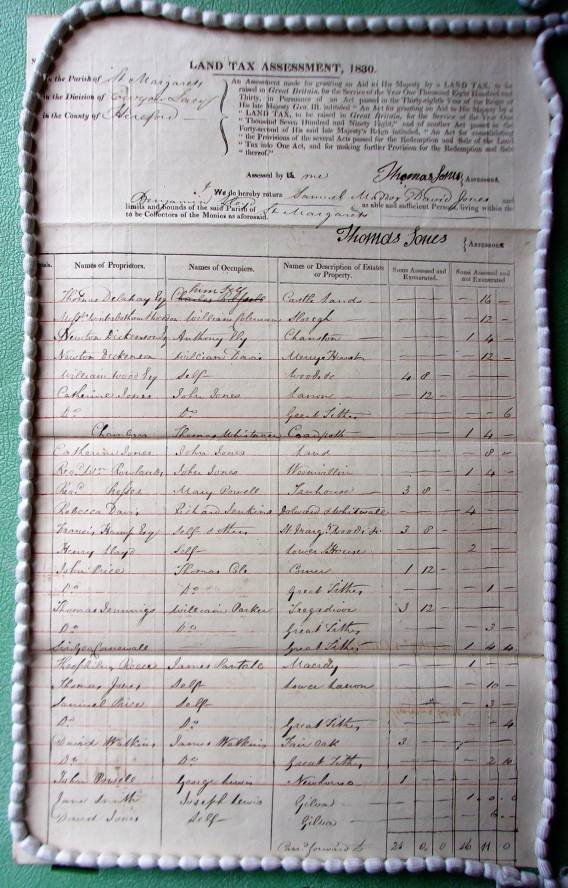 LAND TAX ASSESSMENT, 1830.
In the Parish of St Margarets
In the Division of Ewyas Lacy
In the County of Hereford
An Assessment made for granting an Aid to His Majesty by a LAND TAX, to be
raised in Great Britain, for the Service of the Year One Thousand Eight Hundred and
Thirty, in Pursuance of an Act passed in the Thirty-eighth Year of the Reign of
His late Majesty Geo. III. intituled "An Act for granting an Aid to His Majesty by a
"LAND TAX, to be raised in Great Britain, for the Service of the Year One
"Thousand Seven Hundred and Ninety Eight," and another Act passed in the
Forty-second of His said late Majesty's Reign intituled, "An Act for consolidating
"the Provisions of the several Acts passed for the Redemption and Sale of the
"Land Tax into One Act, and for making further Provision for the Redemption and Sale
"thereof."
Assessed by me Thomas Jones Assessor.
We do hereby return Samuel David Jones and
Benjamin as able and sufficient Persons, living within the
limits and bounds of the said Parish of St Margarets
to be Collectors of the Monies as aforesaid.
Thomas Jones Assessor
Names of Proprietors. Names of Occupiers. Names or Description of Estates or Property. Sums Assessed and Exonerated. Sums Assessed and not Exonerated.
Thomas Delahay Esq himself Castle Lands — — — 16 —
William Slough — — — 12 —
Newton Dickenson Esq Anthony Chanston — — 1 4 —
Newton Dickenson William Davis — — — 12 —
William Wood Esq Self Woodside 4 8 — — —
Catherine Jones John Jones — 12 — — —
Do Do Great Tithes — — — — 6
Chambers Thomas Whitcombe — — 1 4 —
Catherine Jones John Jones Land — — — 8 —
Revd Wm Rowlands John Jones — — 1 4 —
Revd Prosser Mary Powell Tanhouse 3 8 — — —
Rebecca Davis Richard Jenkins — — 4 — —
Francis Hamp Esq Self & others St Margts Woods &c 3 8 — — —
Henry Lloyd Self Lower House — — 2 — —
John Price Thomas Cole Corner 1 12 — — —
Do Do Great Tithes — — — 1 —
Thomas Jennings William Parker 3 12 — — —
Do Do Great Tithes — — — 3 —
Sir Geo Cornewall Great Tithes — — 1 4 4
Theophilus Reece James — — 1 — —
Thomas Jones Self Lower — — — 10 —
Samuel Price Self — — — 3 —
Do Do Great Tithes — — — — 4
David Watkins James Watkins Fair Oak 3 — — — —
Do Do Great Tithes — — — 2 10
John Powell George Lewis 1 — — — —
Jane Smith Joseph Lewis Gilva — — 1 0 0
David Jones Self Gilva — — — 6 —
Card forward to 26 0 0 16 11 0